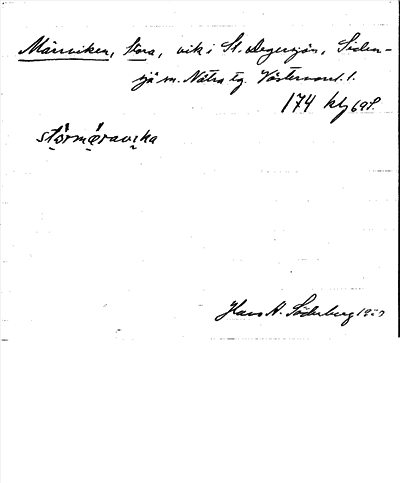 Märrviken, Stora, vik i St. Degersjön, Siden-
sjö sn. Nätra tg. Västernorrl. l.
174
störmäravika
Hans A. Söderberg